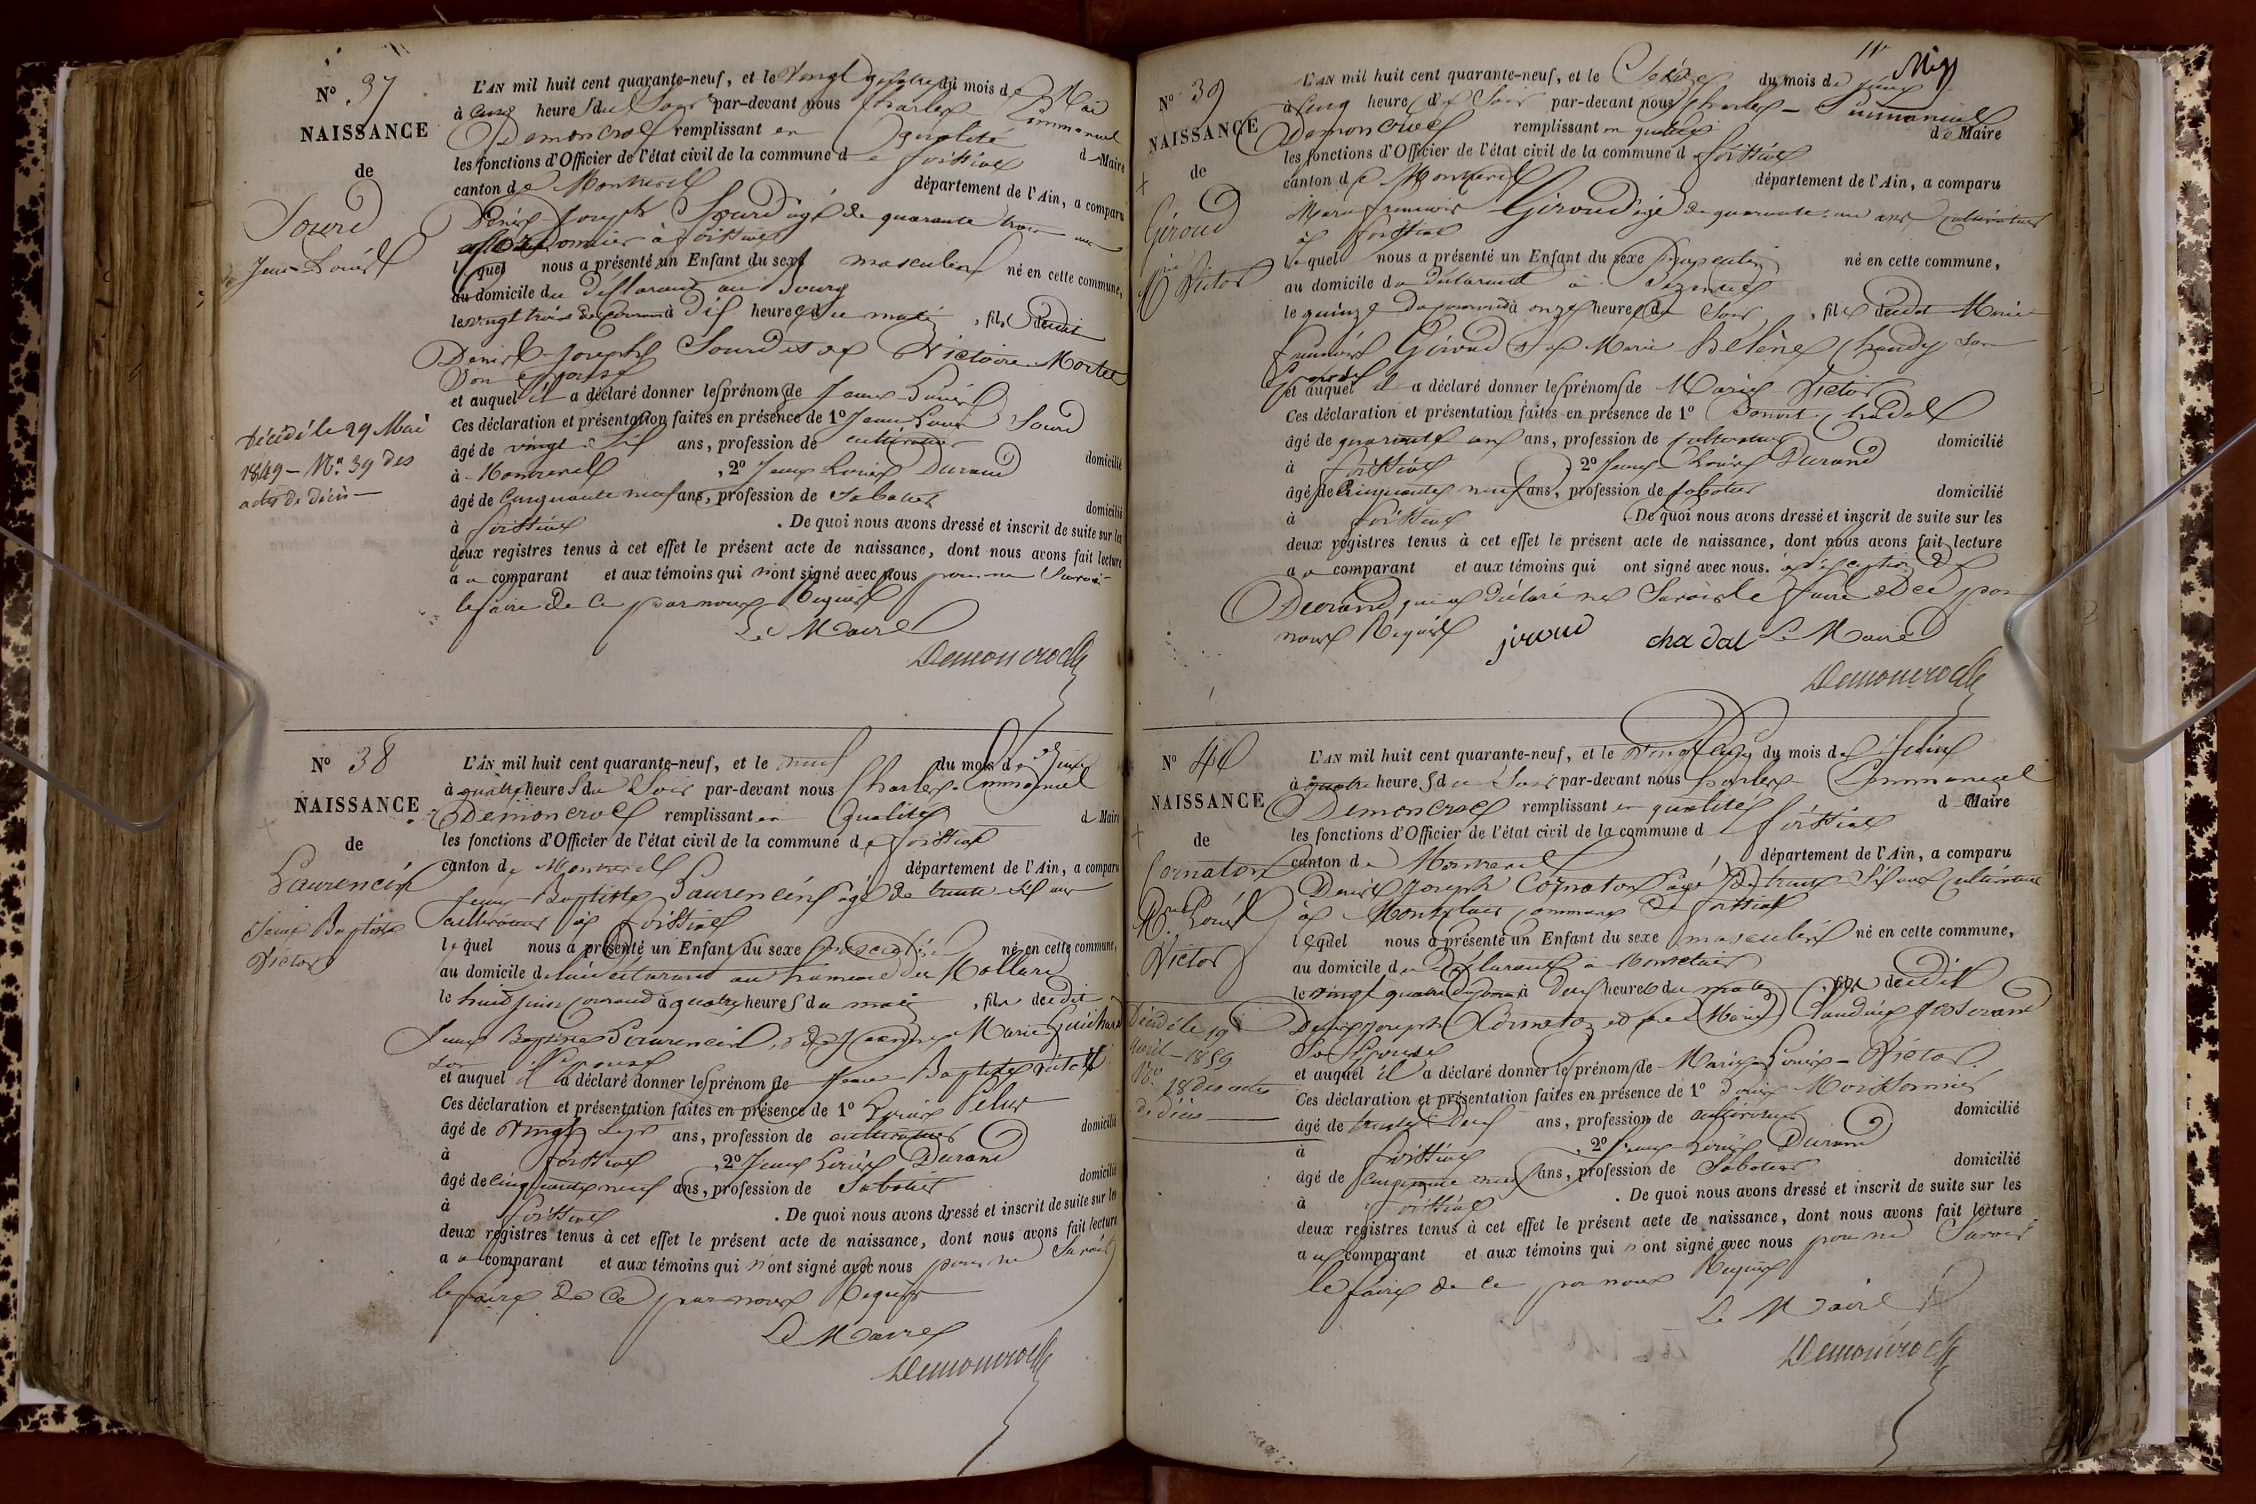 N° 37
NAISSANCE
de
Sourd
Jean Louis
Décédé le 29 Mai
1849 – N° 39 des
actes de décès —
L'AN mil huit cent quarante-neuf, et le vingt quatre du mois de Mai
à cinq heures du soir par-devant nous Charles Emmanuel
Demoncroc remplissant en qualité de Maire
les fonctions d'Officier de l'état civil de la commune de foissiat
canton de Montrevel département de l'Ain, a comparu
Denis Joseph Sourd âgé de quarante trois ans
à foissiat
lequel nous a présenté un Enfant du sexe masculin né en cette commune,
au domicile du déclarant au
le vingt trois du courant à dix heures du matin, fils dudit
Denis Joseph Sourd et de Victoire Mortel
son épouse
et auquel il a déclaré donner les prénoms de Jean Louis
Ces déclaration et présentation faites en présence de 1° Jean Louis Sourd
âgé de vingt ans, profession de cultivateur domicilié
à Montrevel, 2° Jean Louis Durand
âgé de Cinquante neuf ans, profession de Sabotier domicilié
à foissiat. De quoi nous avons dressé et inscrit de suite sur les
deux registres tenus à cet effet le présent acte de naissance, dont nous avons fait lecture
au comparant et aux témoins qui n'ont signé avec nous pour ne savoir
le faire de ce par nous Requis
Le Maire
Demoncroc
N° 38
NAISSANCE
de
Laurencin
Jean Baptiste
Victor
L'AN mil huit cent quarante-neuf, et le neuf du mois de Juin
à quatre heures du soir par-devant nous Charles Emmanuel
Demoncroc remplissant en qualité de Maire
les fonctions d'Officier de l'état civil de la commune de foissiat
canton de Montrevel département de l'Ain, a comparu
Jean Baptiste Laurencin âgé de trente six ans
cultivateur à foissiat
lequel nous a présenté un Enfant du sexe masculin né en cette commune,
au domicile du déclarant au hameau du
le huit juin courant à quatre heures du matin, fils dudit
Jean Baptiste Laurencin et de Marie Guichard
son épouse
et auquel il a déclaré donner les prénoms de Jean Baptiste Victor
Ces déclaration et présentation faites en présence de 1° Louis
âgé de vingt sept ans, profession de cultivateur domicilié
à foissiat, 2° Jean Louis Durand
âgé de cinquante neuf ans, profession de Sabotier domicilié
à foissiat. De quoi nous avons dressé et inscrit de suite sur les
deux registres tenus à cet effet le présent acte de naissance, dont nous avons fait lecture
au comparant et aux témoins qui n'ont signé avec nous pour ne savoir
le faire de ce par nous Requis
Le Maire
Demoncroc
N° 39
NAISSANCE
de
Giroud
Victor
L'AN mil huit cent quarante-neuf, et le Seize du mois de juin
à cinq heures du soir par-devant nous Charles Emmanuel
Demoncroc remplissant en qualité de Maire
les fonctions d'Officier de l'état civil de la commune de foissiat
canton de Montrevel département de l'Ain, a comparu
Marie françois Giroud âgé de quarante un ans Cultivateur
à foissiat
lequel nous a présenté un Enfant du sexe Masculin né en cette commune,
au domicile du déclarant à
le quinze du courant à onze heures du soir, fils dudit Marie
françois Giroud et de Marie Hélène Chaudy son
épouse
et auquel il a déclaré donner les prénoms de Marie Victor
Ces déclaration et présentation faites en présence de 1° Benoit Chadal
âgé de quarante ans, profession de Cultivateur domicilié
à foissiat 2° Jean Louis Durand
âgé de Cinquante neuf ans, profession de sabotier domicilié
à foissiat. De quoi nous avons dressé et inscrit de suite sur les
deux registres tenus à cet effet le présent acte de naissance, dont nous avons fait lecture
au comparant et aux témoins qui ont signé avec nous. à l'exception de
Durand qui a déclaré ne savoir le faire de ce par
nous Requis jiroud chadal Le Maire
Demoncroc
N° 40
NAISSANCE
de
Cornaton
Louis
Victor
Décédé le 19
Avril – 1859
N° 28 des actes
de décès
L'AN mil huit cent quarante-neuf, et le vingt cinq du mois de Juin
à quatre heures du soir par-devant nous Charles Emmanuel
Demoncroc remplissant en qualité de Maire
les fonctions d'Officier de l'état civil de la commune d foissiat
canton de Montrevel département de l'Ain, a comparu
Denis Joseph Cornaton âgé de trente six ans Cultivateur
à Montclair commune de foissiat
lequel nous a présenté un Enfant du sexe masculin né en cette commune,
au domicile du déclarant à Montclair
le vingt quatre du courant à deux heures du matin, fils dudit
Denis Joseph Cornaton et de Marie Claudine Josserand
son Epouse
et auquel il a déclaré donner les prénoms de Marie Louis Victor
Ces déclaration et présentation faites en présence de 1° Denis
âgé de trente deux ans, profession de cultivateur domicilié
à foissiat, 2° Jean Louis Durand
âgé de cinquante neuf ans, profession de Sabotier domicilié
à foissiat. De quoi nous avons dressé et inscrit de suite sur les
deux registres tenus à cet effet le présent acte de naissance, dont nous avons fait lecture
au comparant et aux témoins qui n'ont signé avec nous pour ne Savoir
le faire de ce par nous Requis
Le Maire
Demoncroc